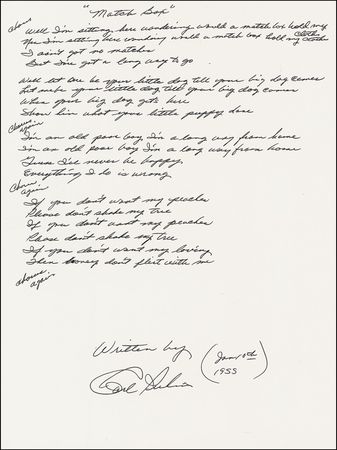 "Match Box"
Chorus
Well I'm sitting here wondering would a match box hold my clothes
Now I'm sitting here wondering would a match box hold my clothes
I ain't got no matches
But I've got a long way to go
Well let me be your little dog till your big dog comes
Let me be your little dog till your big dog comes
When your big dog gets here
Show him what your little puppy done
Chorus again
I'm an old poor boy, I'm a long way from home
I'm an old poor boy I'm a long way from home
Guess I've never be happy,
Everything I do is wrong
Chorus again
If you don't want my peaches
Please don't shake my tree
If you don't want my peaches
Please don't shake my tree
If you don't want my loving
Then honey don't flirt with me
Chorus again
Written by
Carl
1955